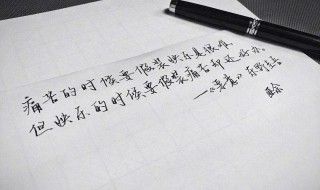 痛苦的时候要假装快乐是很难,
但快乐的时候要假装痛苦却还好办.
—《恶意》东野圭吾